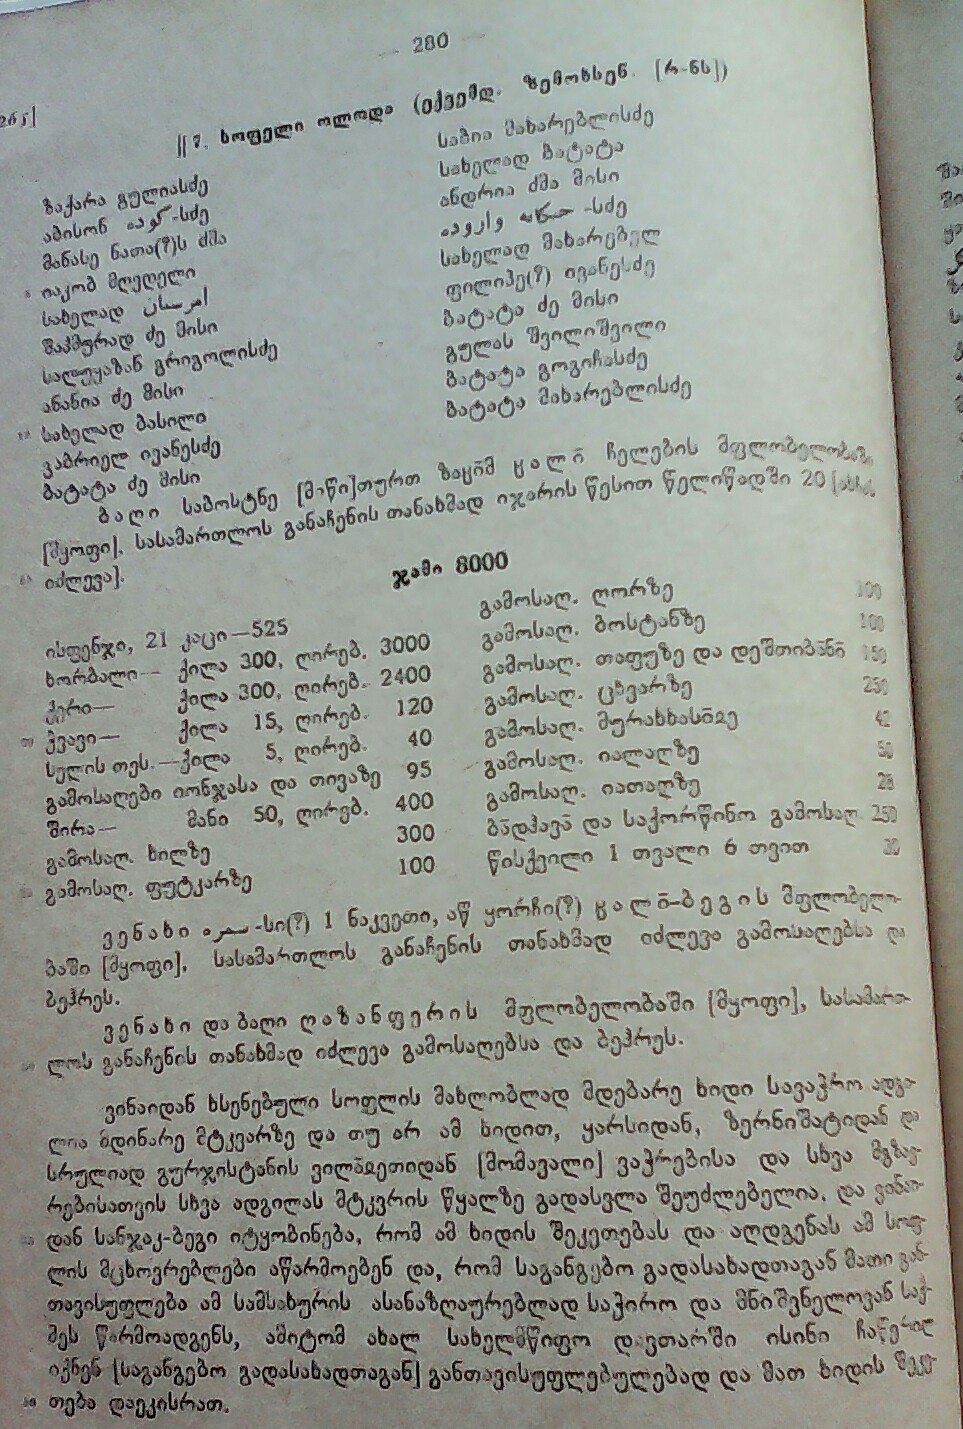 280
265]
|| 7. სოფელი ოლოდა (ექვემდ. ზემოხსენ. [რ-ნს])
ზაქარა გულიასძე
აბისონ -სძე
მანასე ნათა(?)ს ძმა
იაკობ მღვდელი
სახელად
შაჰმურად ძე მისი
სალუყაზან გრიგოლისძე
ანანია ძე მისი
სახელად ბასილი
გაბრიელ ივანესძე
ბატატა ძე მისი
საბია მახარებლისძე
სახელად ბატატა
ანდრია ძმა მისი
-სძე
სახელად მახარებელ
ფილიპე(?) ივანესძე
ბატატა ძე მისი
გულას შვილიშვილი
ბატატა გოგიჩასძე
ბატატა მახარებლისძე
ბაღი საბოსტნე [მიწი]თურთ ჩელების მფლობელობაში
[მყოფი], სასამართლოს განაჩენის თანახმად იჯარის წესით წელიწადში 20
იძლევა].
ჯამი 8000
ისფენჯი, 21 კაცი—525
ხორბალი— ქილა 300, ღირებ. 3000
ქერი— ქილა 300, ღირებ. 2400
ჭვავი— ქილა 15, ღირებ. 120
სელის თეს.—ქილა 5, ღირებ. 40
გამოსაღები იონჯასა და თივაზე 95
შირა— მანი 50, ღირებ. 400
გამოსაღ. ხილზე 300
გამოსაღ. ფუტკარზე 100
გამოსაღ. ღორზე 100
გამოსაღ. ბოსტანზე 100
გამოსაღ. თაფუზე და დეშთიბანი̄ 150
გამოსაღ. ცხვარზე 250
გამოსაღ. 42
გამოსაღ. იალაღზე 50
გამოსაღ. იათაღზე 28
ბა̄დჰავა̄ და საქორწინო გამოსაღ. 250
წისქვილი 1 თვალი 6 თვით 30
ვენახი -სი(?) 1 ნაკვეთი, აწ ყორჩი(?) მფლობელო-
ბაში [მყოფი], სასამართლოს განაჩენის თანახმად იძლევა გამოსაღებსა და
ბეჰრეს.
ვენახი და ბაღი ღაზანფერის მფლობელობაში [მყოფი], სასამართ-
ლოს განაჩენის თანახმად იძლევა გამოსაღებსა და ბეჰრეს.
ვინაიდან ხსენებული სოფლის მახლობლად მდებარე ხიდი სავაჭრო ადგი-
ლია მდინარე მტკვარზე და თუ არ ამ ხიდით, ყარსიდან, ზერნიშატიდან და
სრულიად გურჯისტანის ვილა̄ჲეთიდან [მომავალი] ვაჭრებისა და სხვა მგზავ-
რებისათვის სხვა ადგილას მტკვრის წყალზე გადასვლა შეუძლებელია, და ვინაი-
დან სანჯაკ-ბეგი იტყობინება, რომ ამ ხიდის შეკეთებას და აღდგენას ამ სოფ-
ლის მცხოვრებლები აწარმოებენ და, რომ საგანგებო გადასახადთაგან მათი გან-
თავისუფლება ამ სამსახურის ასანაზღაურებლად საჭირო და მნიშვნელოვან საქ-
მეს წარმოადგენს, ამიტომ ახალ სახელმწიფო დავთარში ისინი ჩაწერილ
იქნენ [საგანგებო გადასახადთაგან] განთავისუფლებულებად და მათ ხიდის შეკე-
თება დაეკისრათ.